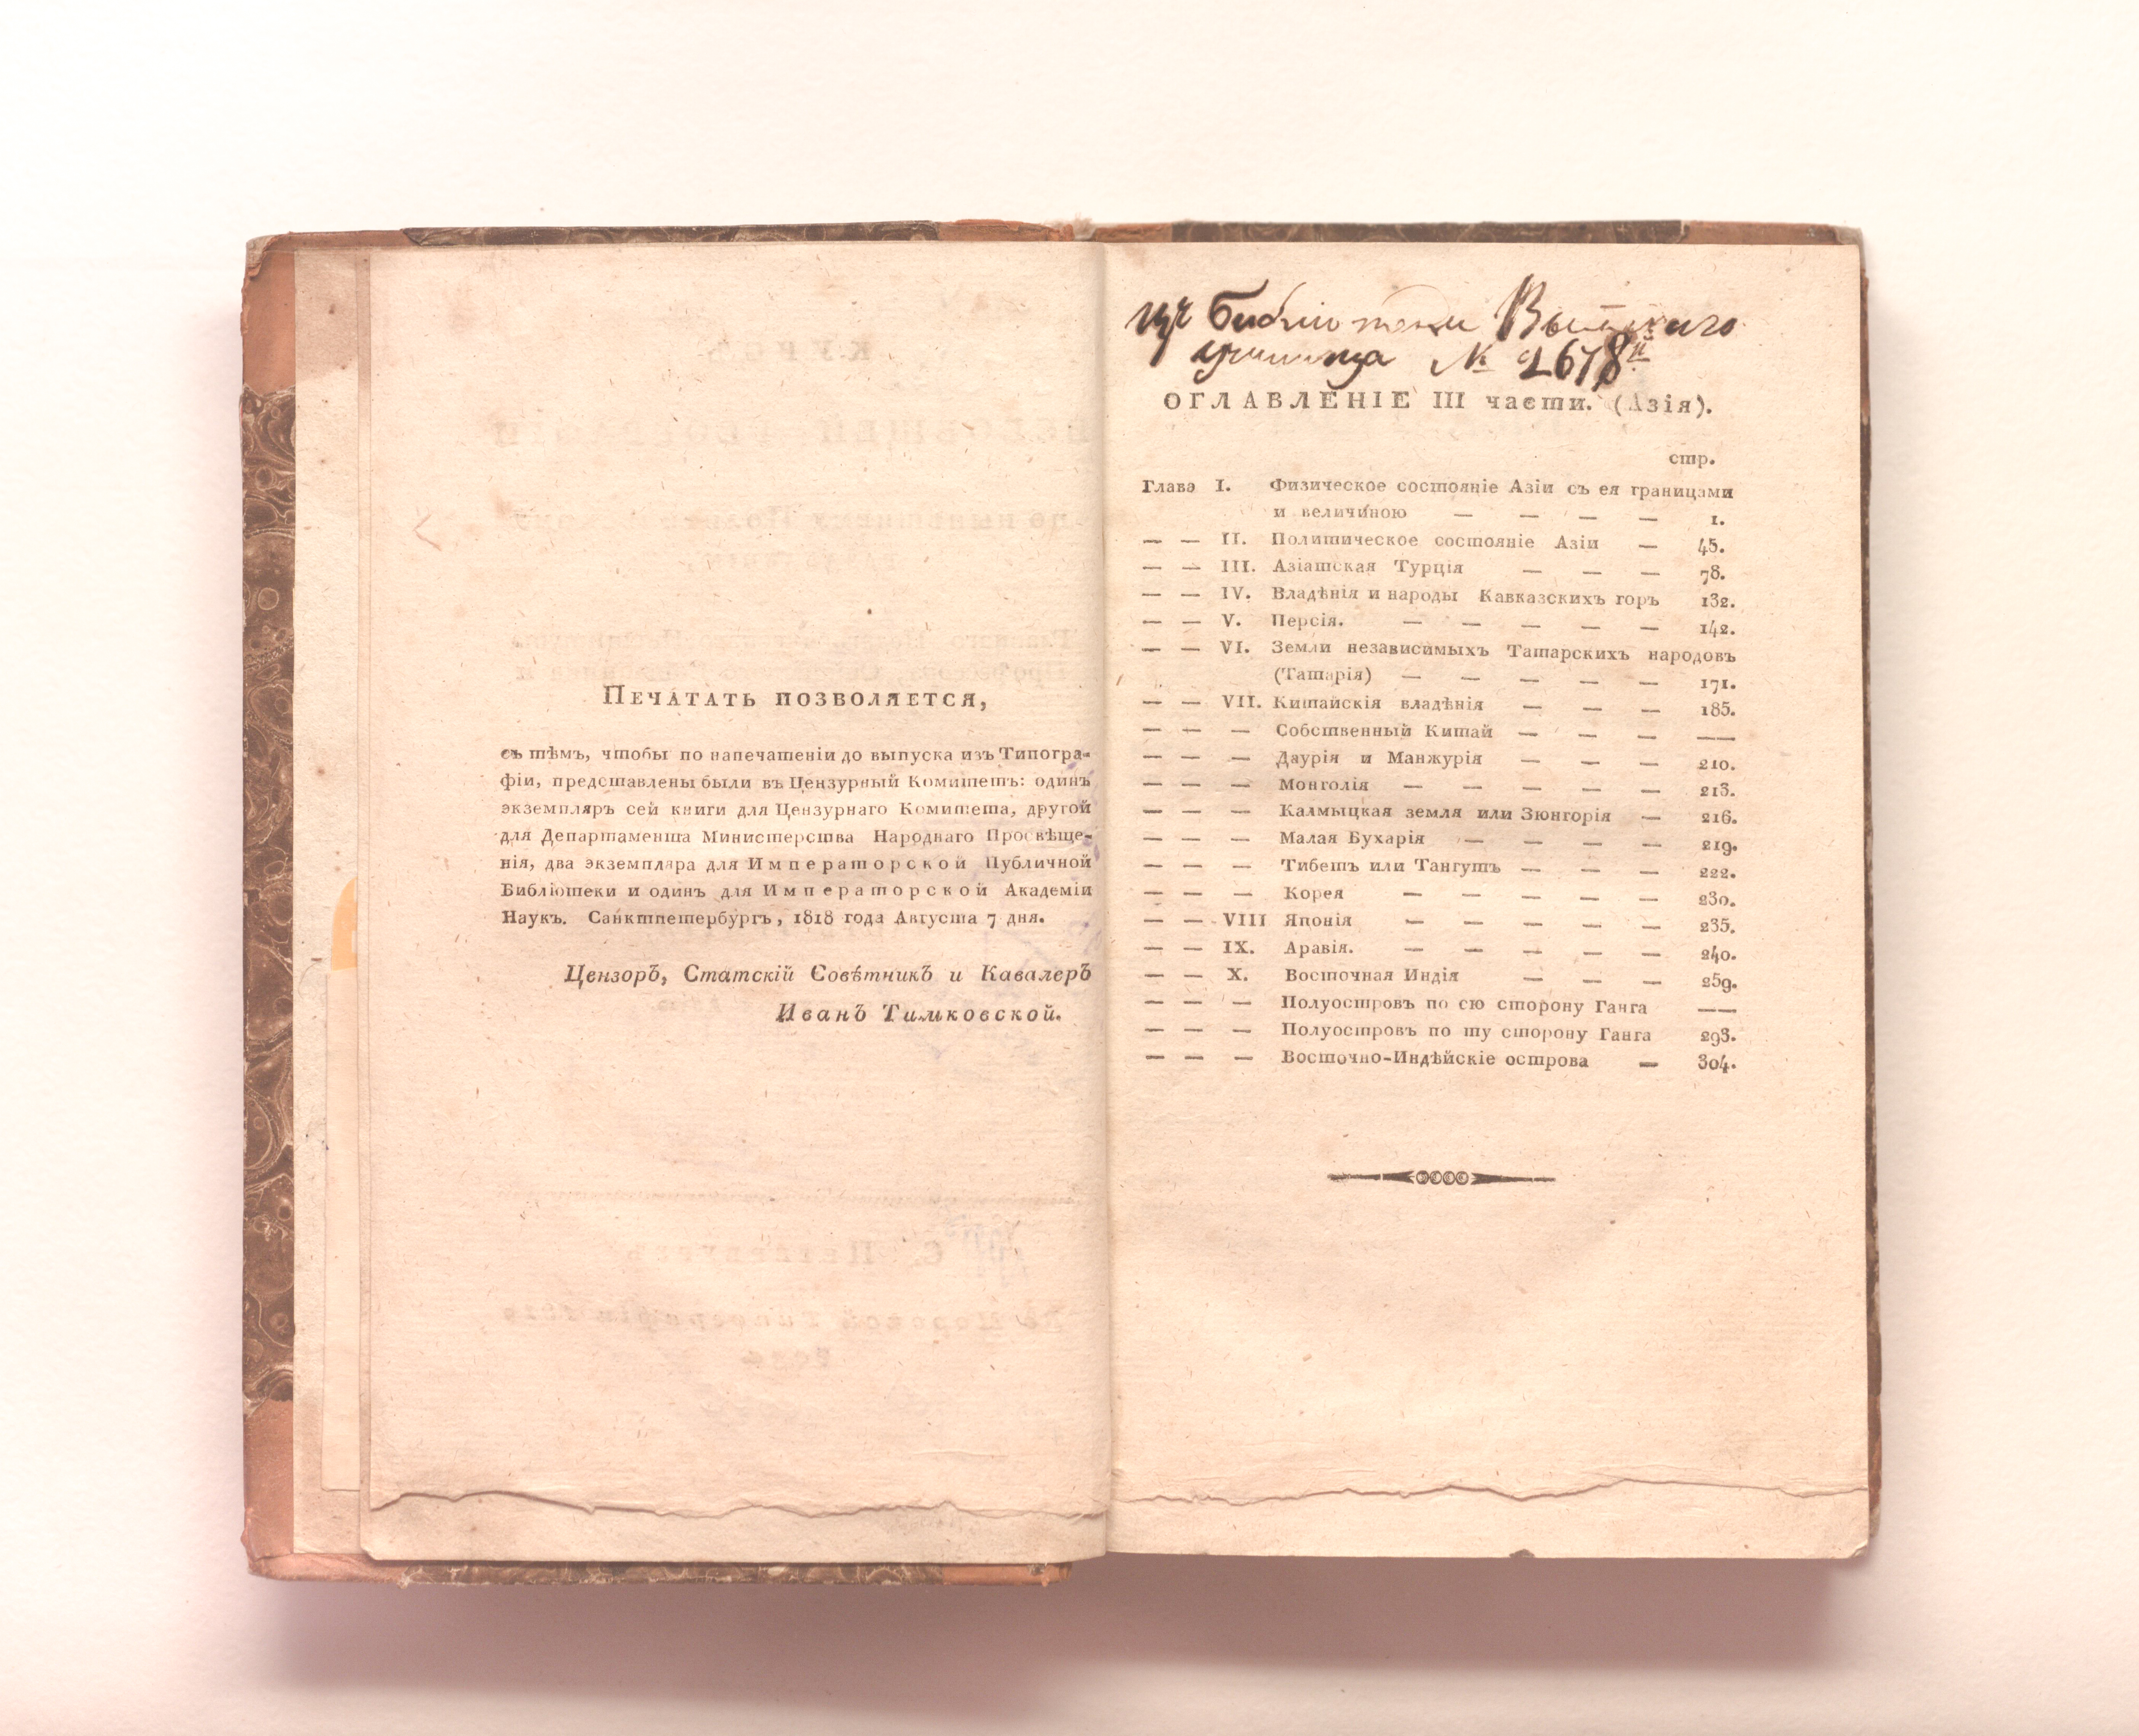 Печатать позволяется,
съ тѣмъ, чтобы по напечатеніи до выпуска изъ Типогра-
фіи, представлены были въ Цензурный Комитетъ: одинъ
экземпляръ сей книги для Цензурнаго Комитета, другой
для Департамента Министерства Народнаго Просвѣще-
нія, два экземпляра для Императорской Публичной
Библіотеки и одинъ для Императорской Академіи
Наукъ. Санктпетербургъ, 1818 года Августа 7 дня.
Цензоръ, Статскій Совѣтникъ и Кавалеръ
Иванъ Тимковской.
Изъ библіотеки
училища № 2678й
ОГЛАВЛЕНІЕ III части. (Азія).
стр.
Глава I. Физическое состояніе Азіи съ ея границами
и величиною — — — — 1.
— — II. Политическое состояніе Азіи — 45.
— — III. Азіатская Турція — — — 78.
— — IV. Владѣнія и народы Кавказскихъ горъ 132.
— — V. Персія. — — — — — 142.
— — VI. Земли независимыхъ Татарскихъ народовъ
(Татарія) — — — — — 171.
— — VII. Китайскія владѣнія — — — 185.
— — — Собственный Китай — — — ——
— — — Даурія и Манжурія — — — 210.
— — — Монголія — — — — — 213.
— — — Калмыцкая земля или Зюнгорія — 216.
— — — Малая Бухарія — — — — 219.
— — — Тибетъ или Тангутъ — — — 222.
— — — Корея — — — — — 230.
— — VIII Японія — — — — — 235.
— — IX. Аравія. — — — — — 240.
— — X. Восточная Индія — — — 259.
— — — Полуостровъ по сю сторону Ганга ——
— — — Полуостровъ по ту сторону Ганга 293.
— — — Восточно-Индѣйскіе острова — 304.